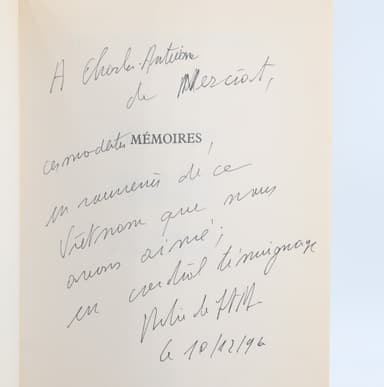 A Charles-Antoine
de Merciat,
ces modestes MÉMOIRES,
en souvenir de ce
Vietnam que nous
avons aimé;
en cordial témoignage
Hélie de
le 10/12/96